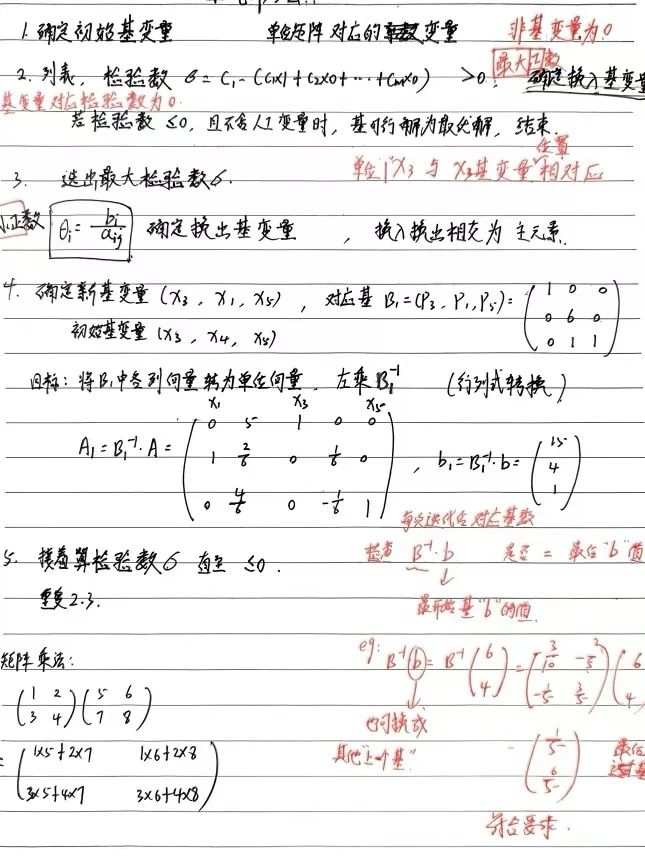 1. 确定初始基变量 单位矩阵对应的变量 非基变量为0
2. 列表，检验数 σ = C₁-(C₁x1+C₂x0+…+Cₘx0) >0， 最大正数 确定换入基变量
基变量对应检验数为0.
若检验数 ≤0，且不含人工变量时，基可行解为最优解，结束.
3. 选出最大检验数σ. 单位"1"X₃ 与 X₃基变量"位置"相对应
小正数 θᵢ = bᵢ/aᵢⱼ 确定换出基变量 ， 换入换出相交为 主元素.
4. 确定新基变量 (X₃, X₁, X₅) ，对应基 B₁=(P₃, P₁, P₅)= (1 0 0
0 6 0
0 1 1)
初始基变量 (X₃, X₄, X₅)
目标：将B₁中各列向量转为单位向量，左乘B₁⁻¹ (行列式转换)
X₁ X₃ X₅
A₁=B₁⁻¹·A= (0 5 1 0 0
1 2/6 0 1/6 0
0 4/6 0 -1/6 1)
, b₁=B₁⁻¹·b= (15
4
1)
每次迭代后对应基数
5. 接着算检验数σ 直至 ≤0.
检查 B⁻¹·b 是否 = 最后"b"值
重复2.3.
最开始基"b"的值
矩阵乘法：
(1 2
3 4) (5 6
7 8)
= (1x5+2x7 1x6+2x8
3x5+4x7 3x6+4x8)
eg: B⁻¹b = B⁻¹ (6
4) = (3/10 -2/5
-1/5 3/5) (6
4
也可换成
其他"上个基"
= (1/5
6/5) 最后
符合要求.